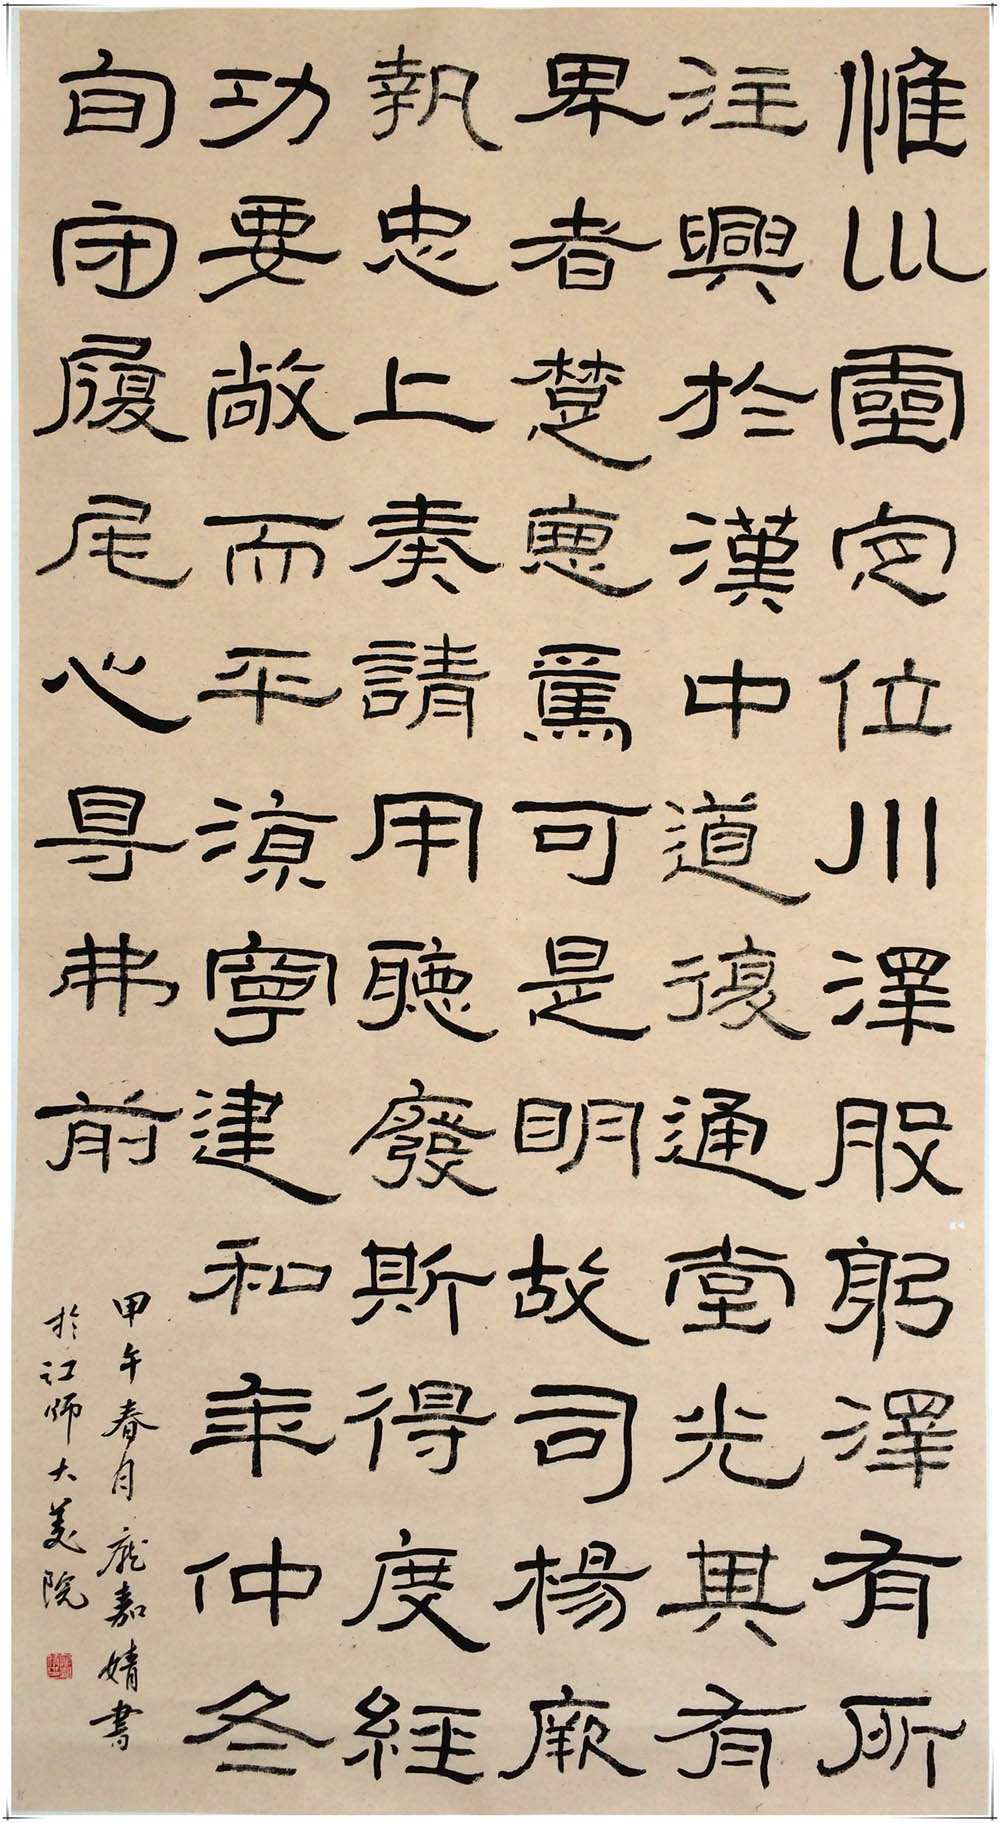 惟巛靈定位川澤股躬澤有所
注興於漢中道復通堂光其有
者楚篤可是明故司楊厥
執忠上奏請用聽發斯得度經
功要敞而平涼寧建和年仲冬
守履尾心㝵弗前
甲午春月龐嘉婧書
於江師大美院